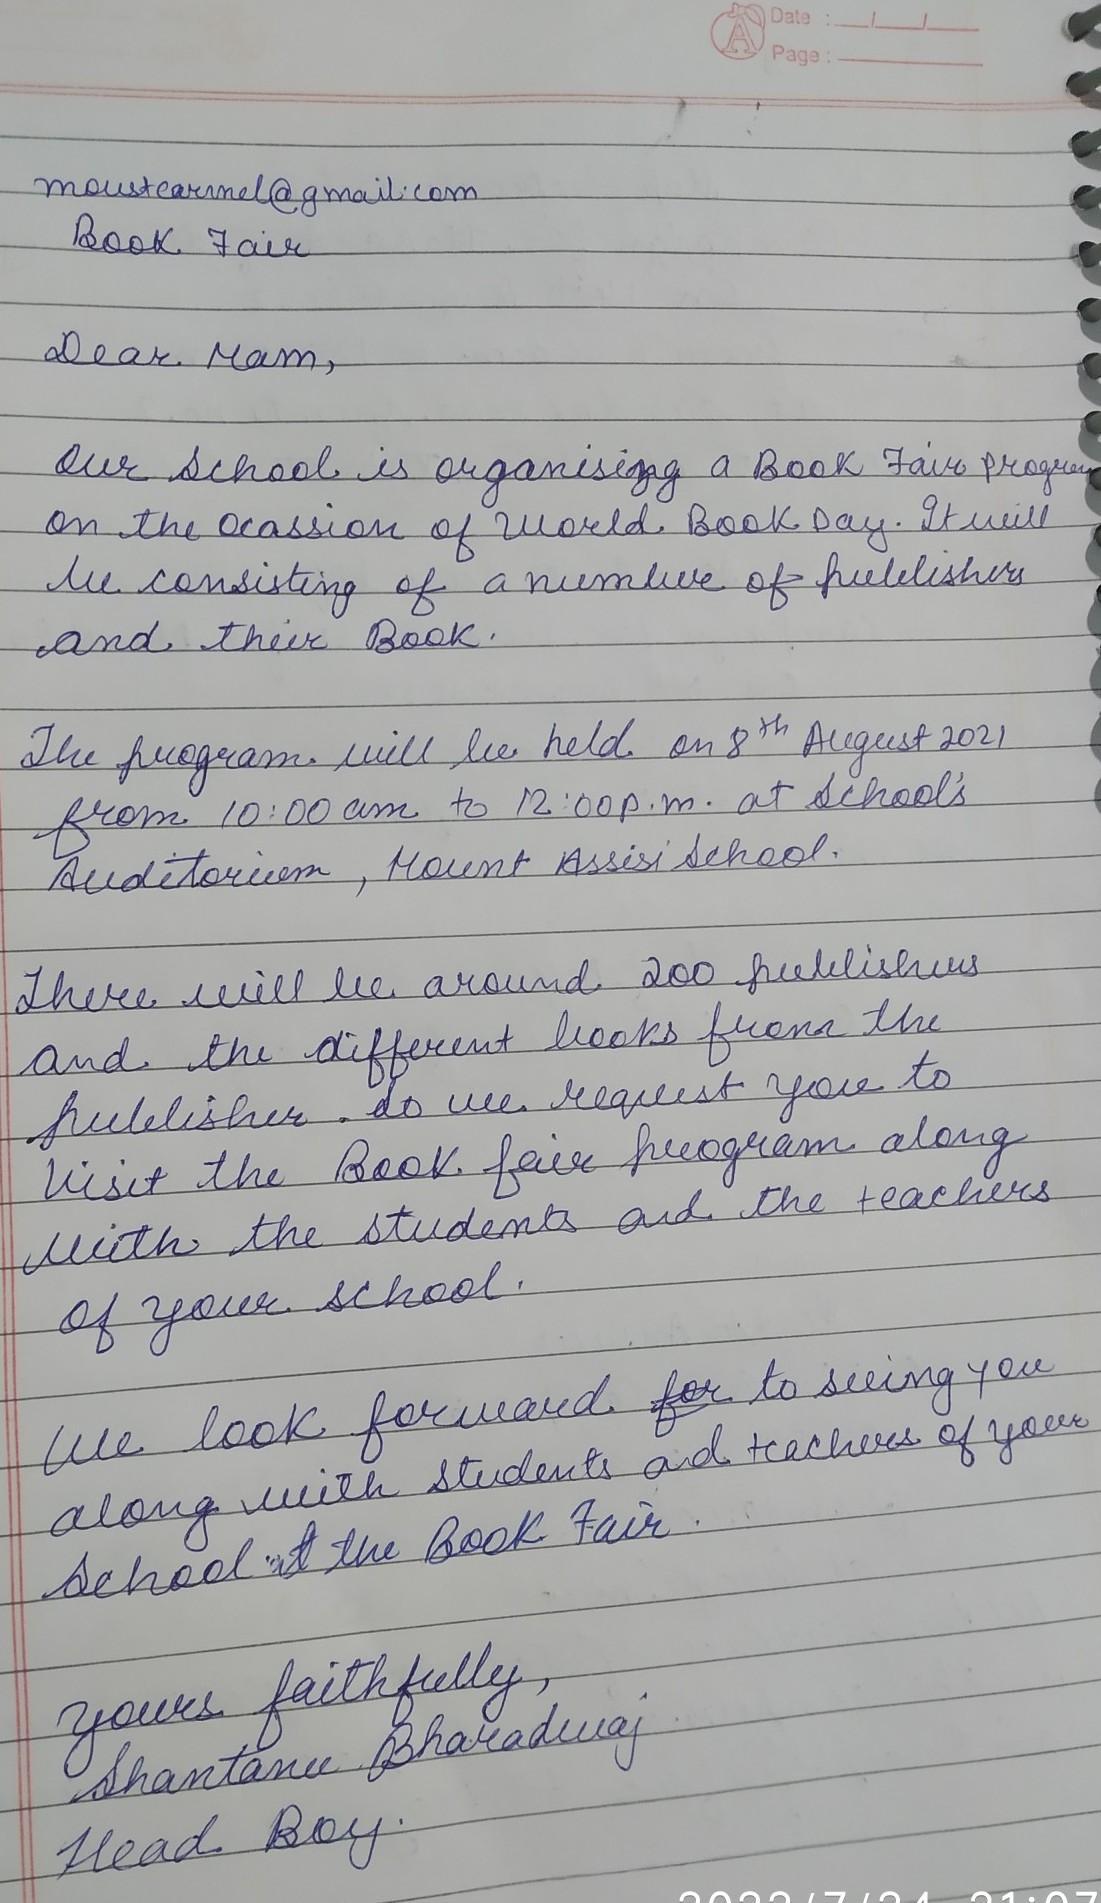 Date : __/__/__
Page :
A
moustcarmel@gmail.com
Book Fair
Dear Mam,
Our School is organising a Book Fair program
on the ocassion of World Book Day. It will
be consisting of a number of publishers
and their Book.
The program will be held on 8th August 2021
from 10:00 am to 12:00 p.m. at School's
Auditorium, Mount Assisi School.
There will be around 200 publishers
and the different books from the
publisher. So we request you to
Visit the Book fair program along
with the students and the teachers
of your school.
We look forward for to seeing you
along with students and teachers of your
School at the Book Fair.
Yours faithfully,
Shantanu Bharadwaj
Head Boy.